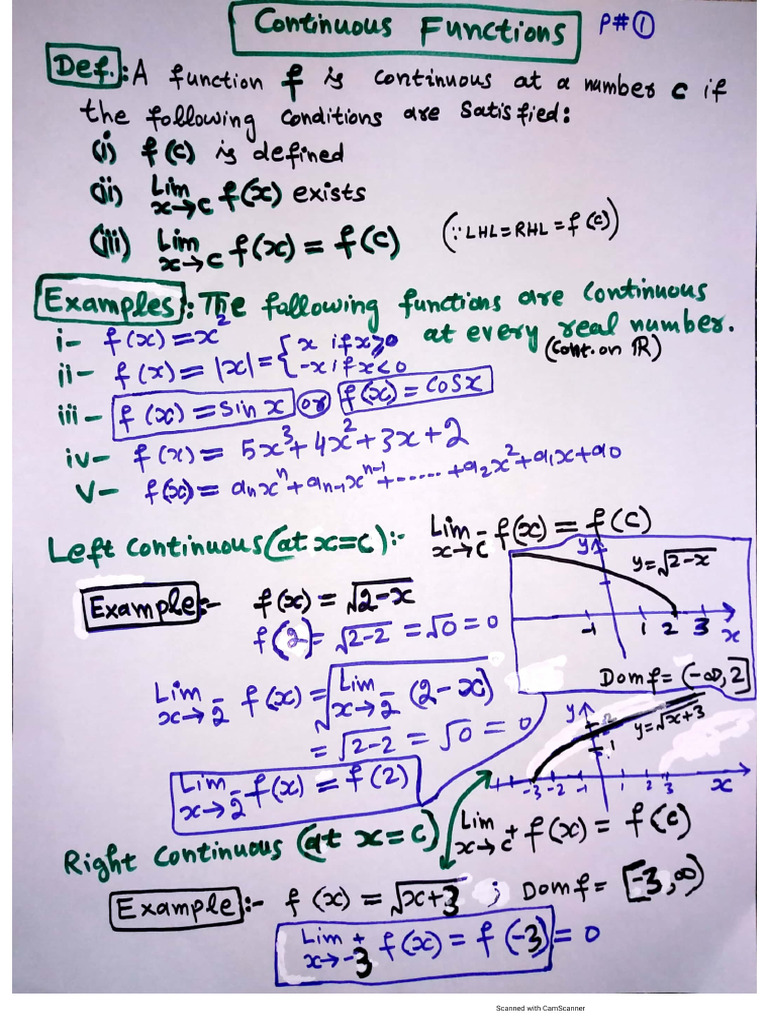 Continuous Functions P#①
Def.: A function f is continuous at a number c if
the following conditions are satisfied:
(i) f(c) is defined
(ii) Lim x→c f(x) exists
(iii) Lim x→c f(x) = f(c) (∵ LHL = RHL = f(c))
Examples: The following functions are continuous
at every real number.
(Cont. on ℝ)
i- f(x) = x²
ii- f(x) = |x| = { x if x≥0
-x if x<0
iii- f(x) = Sin x or f(x) = Cos x
iv- f(x) = 5x³+4x²+3x+2
V- f(x) = aₙxⁿ+aₙ₋₁xⁿ⁻¹+......+a₂x²+a₁x+a₀
Left Continuous (at x=c):- Lim x→c⁻ f(x) = f(c)
Example:- f(x) = √(2-x)
f(2) = √(2-2) = √0 = 0
Lim x→2⁻ f(x) = √(Lim x→2⁻ (2-x))
= √(2-2) = √0 = 0
Lim x→2⁻ f(x) = f(2)
y
y=√(2-x)
-1 1 2 3 x
Dom f = (-∞, 2]
y
y=√(x+3)
2
1
-3 -2 -1 1 2 3 x
Right Continuous (at x=c) Lim x→c⁺ f(x) = f(c)
Example:- f(x) = √(x+3) ; Dom f = [-3, ∞)
Lim x→-3⁺ f(x) = f(-3) = 0
Scanned with CamScanner